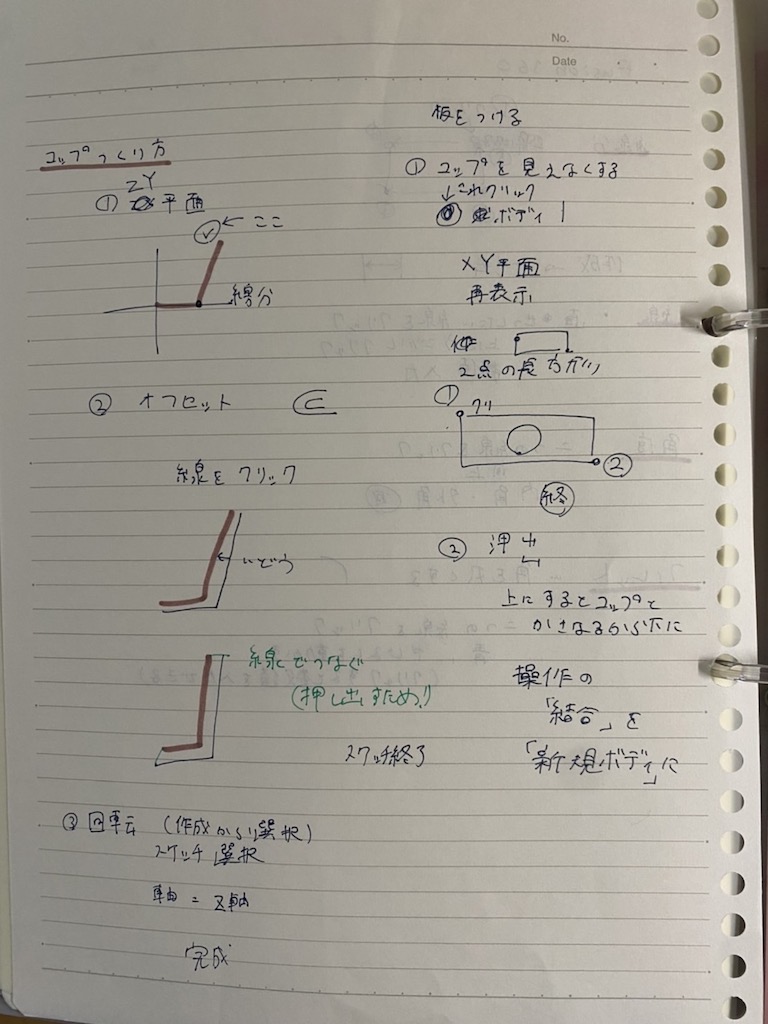 No.
Date
コップつくり方
ZY
① 平面
✓ ← ここ
線分
② オフセット ⊂
線をクリック
いどう
線でつなぐ
(押し出すため!)
スケッチ終了
③ 回転 (作成から選択)
スケッチ選択
軸 = Z軸
完成
板をつける
① コップを見えなくする
↓これクリック
ボディ1
XY平面
再表示
2点の長方形
① クリ
②
終
② 押出し
上にするとコップと
かさなるから下に
操作の
「結合」を
「新規ボディ」に